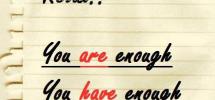 You are enough
You have enough